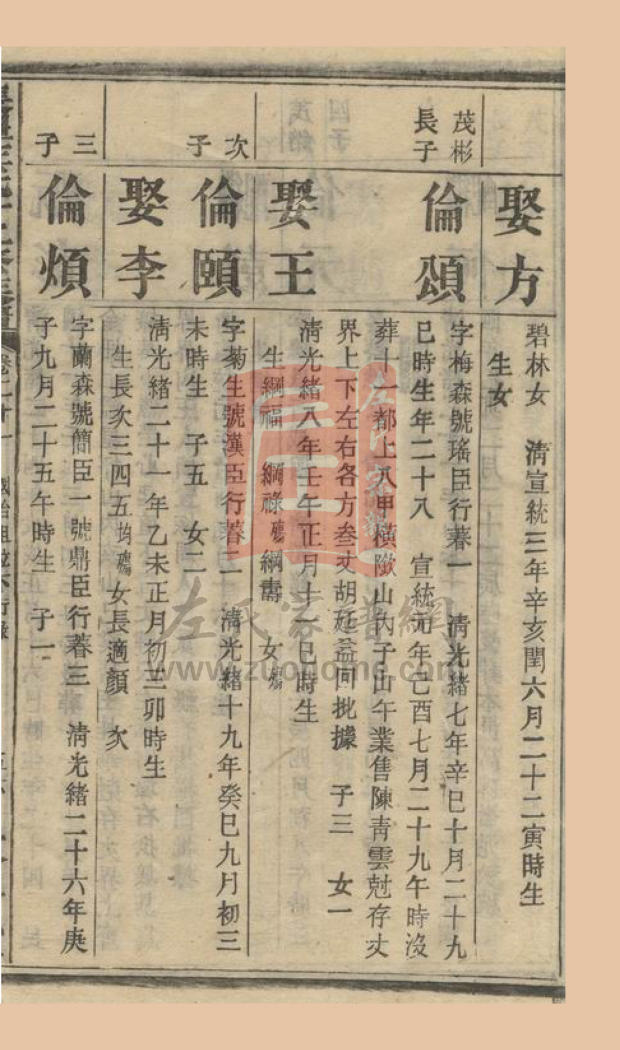 娶方
碧林女　清宣統三年辛亥閏六月二十二寅時生
生女
茂彬
長子
倫頌
字梅森號瑤臣行暮一　清光緒七年辛巳十月二十九
巳時生年二十八　宣統元年己酉七月二十九午時沒
葬十一都上八甲橫　山內子山午業售陳青雲尅存丈
界上下左右各方叁丈胡延益囘批據　子三　女一
娶王
清光緒八年壬午正月十一巳時生
生綱福　綱祿殤綱壽　女殤
次子
倫頤
字菊生號漢臣行暮二　清光緒十九年癸巳九月初三
未時生　子五　女二
娶李
清光緒二十一年乙未正月初三卯時生
生長次三四五均殤女長適顏　次
三子
倫煩
字蘭森號簡臣一號鼎臣行暮三　清光緒二十六年庚
子九月二十五午時生　子一
卷二十一
左氏家譜網
www.zuohome.com